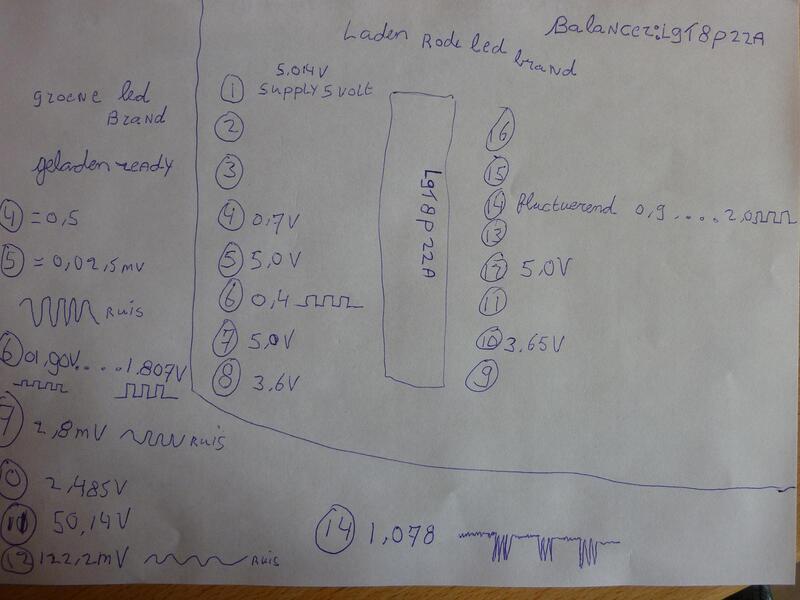 Balancer:LgT8p22A
Laden Rode led brand
groene led
Brand
geladen ready
④ = 0,5
⑤ = 0,02,5mv
Ruis
⑥ 01,90V....1.807V
⑦ 2,8mV Ruis
⑩ 2,485V
⑪ 50,14V
⑫ 122,2mV Ruis
5.04V
① Supply 5 volt
②
③
④ 0,7V
⑤ 5,0V
⑥ 0,4
⑦ 5,0V
⑧ 3,6V
LgT8p22A
⑯
⑮
⑭ fluctuerend 0,9....2,0
⑬
⑫ 5.0V
⑪
⑩ 3.65V
⑨
⑭ 1,078